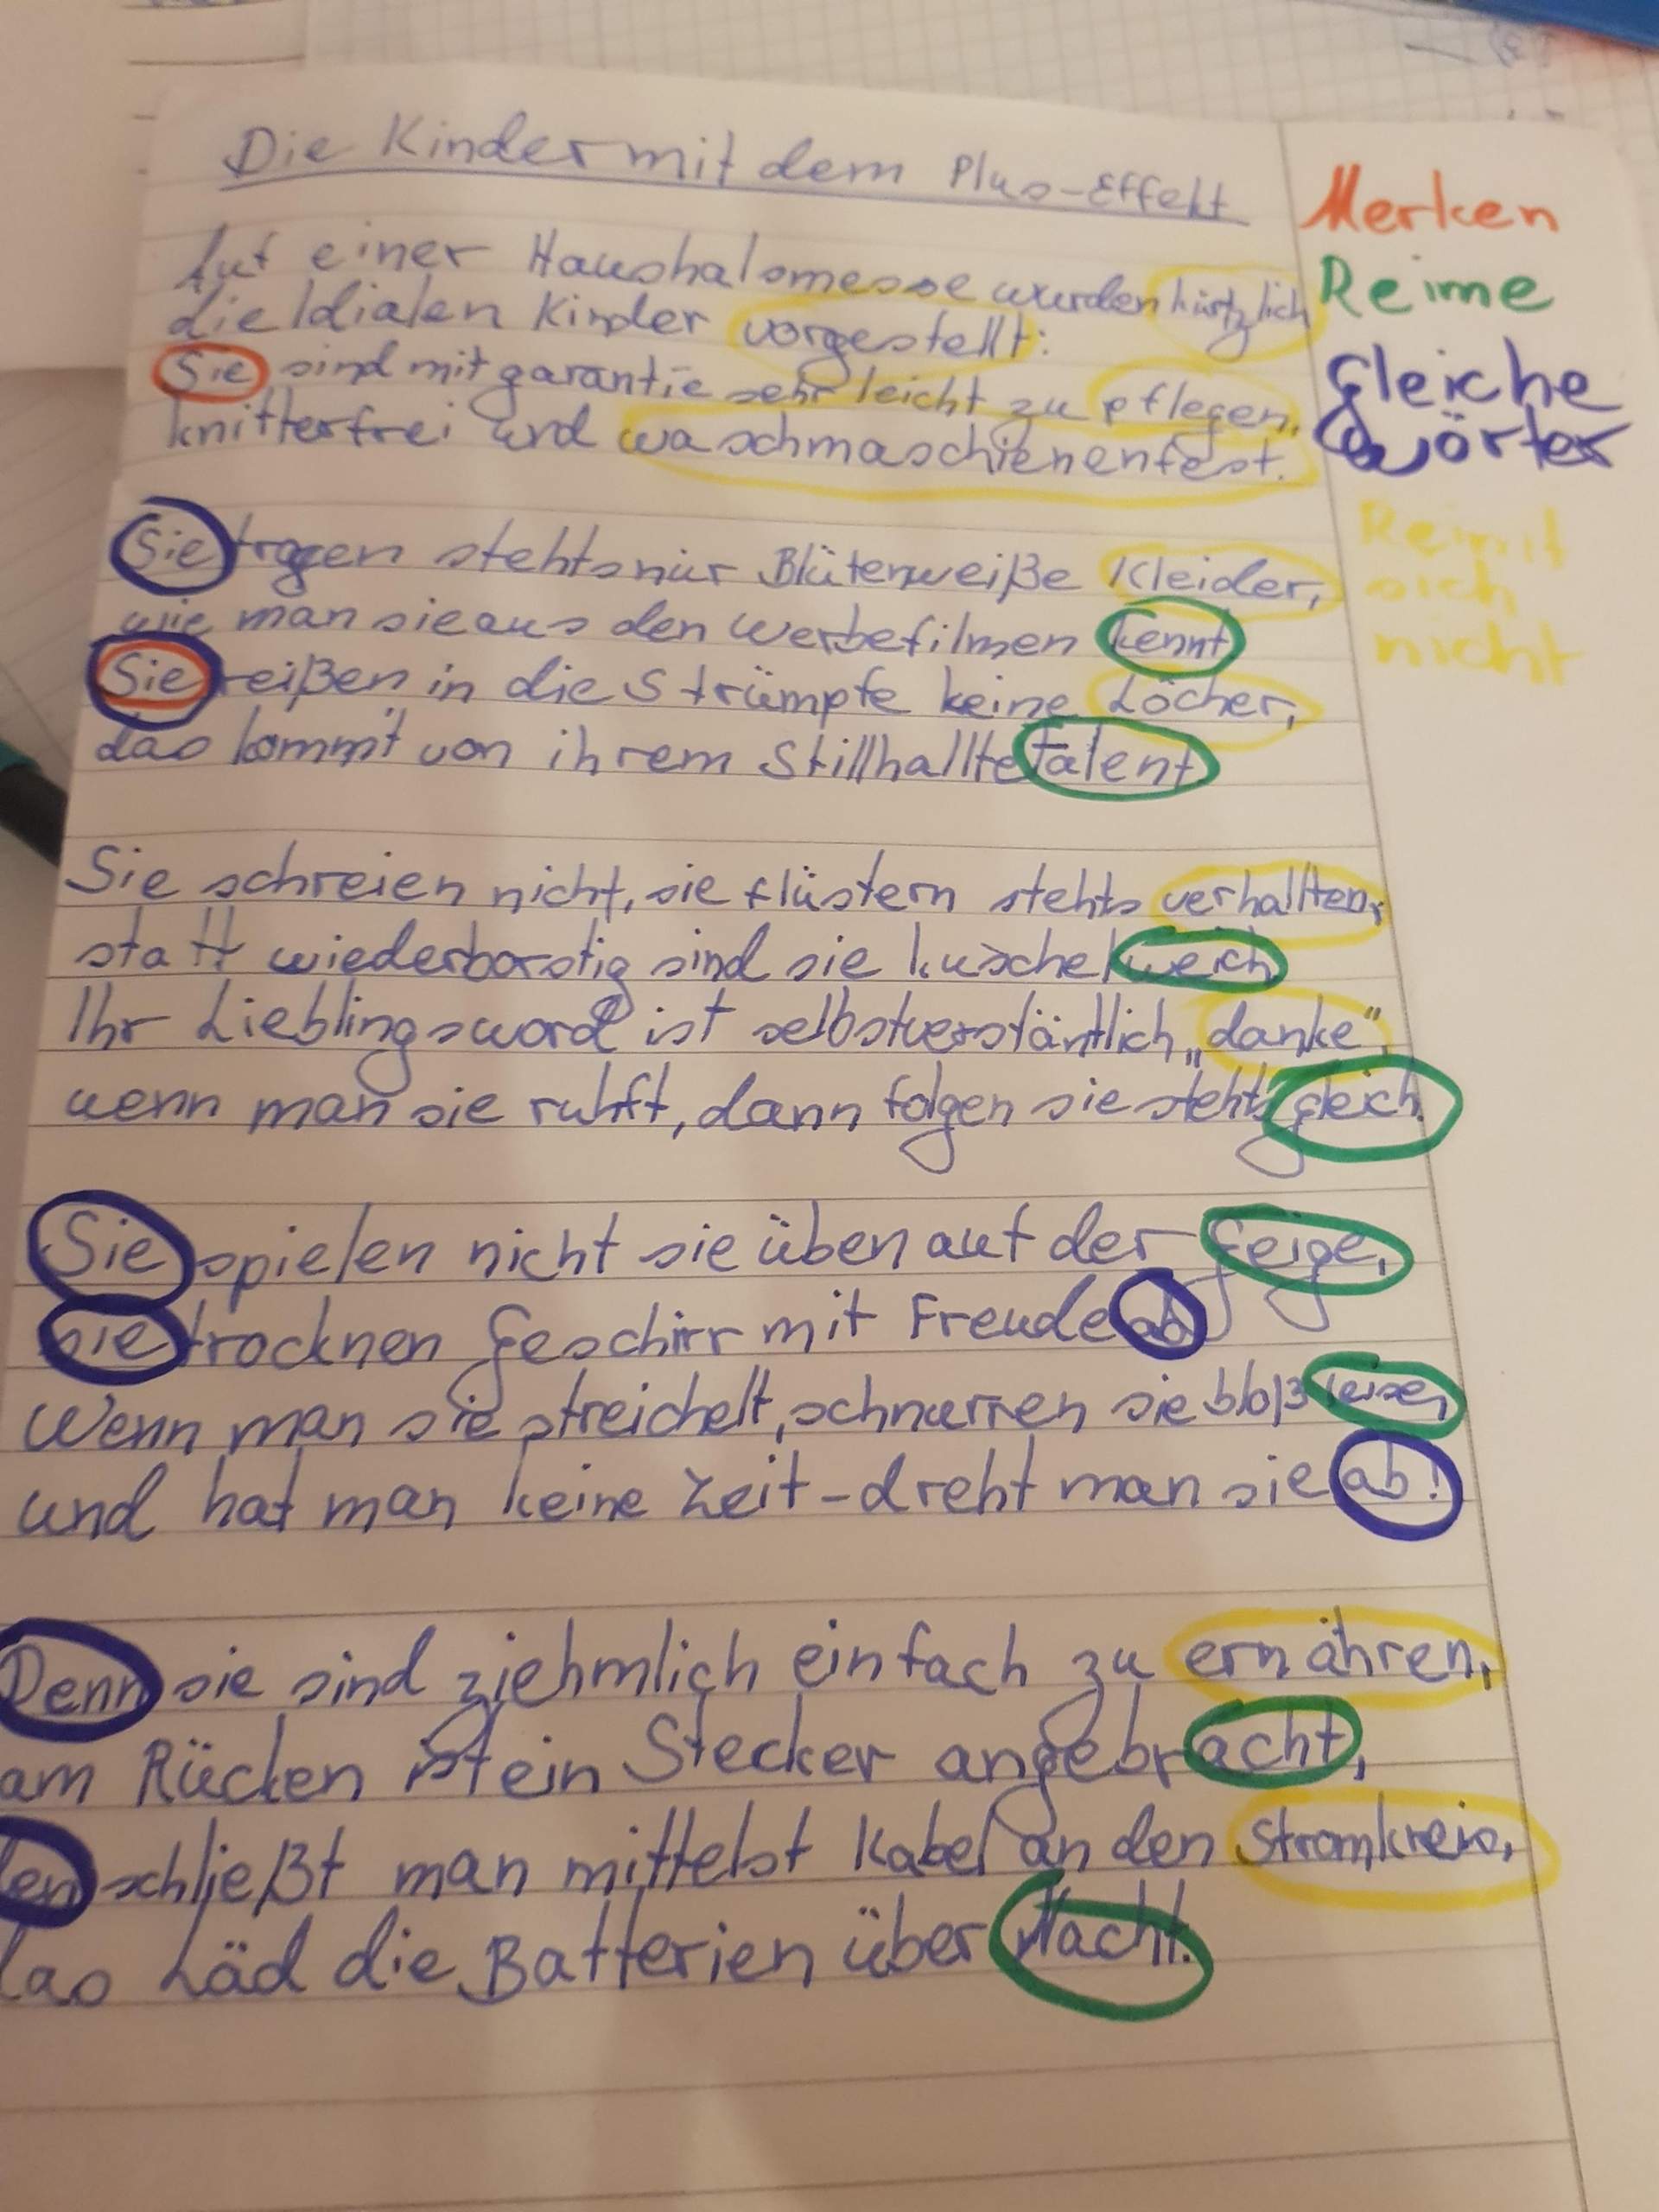 Die Kinder mit dem Plus-Effekt
Auf einer Haushalsmesse wurden kürtzlich
die Idialen Kinder vorgestellt:
Sie sind mit garantie sehr leicht zu pflegen,
knitterfrei und waschmaschienenfest.
Sie tragen stehts nur Blütenweiße Kleider,
wie man sie aus den Werbefilmen kennt
Sie reißen in die Strümpfe keine Löcher,
das kommt von ihrem Stillhallte Talent
Sie schreien nicht, sie flüstern stehts verhallten,
statt wiederborstig sind sie kuschelweich
Ihr Lieblingsword ist selbstverstäntlich „danke",
wenn man sie ruhft, dann folgen sie stehts gleich.
Sie spielen nicht sie üben auf der Geige,
sie trocknen Geschirr mit Freude ab
Wenn man sie streichelt, schnurren sie bloß leise,
und hat man keine Zeit-dreht man sie ab!
Denn sie sind ziehmlich einfach zu ernähren,
am Rücken ist ein Stecker angebracht,
den schließt man mittelst Kabel an den Stromkreis,
das Läd die Batterien über Nacht.
Merken
Reime
Gleiche
Wörter
Reimt
sich
nicht